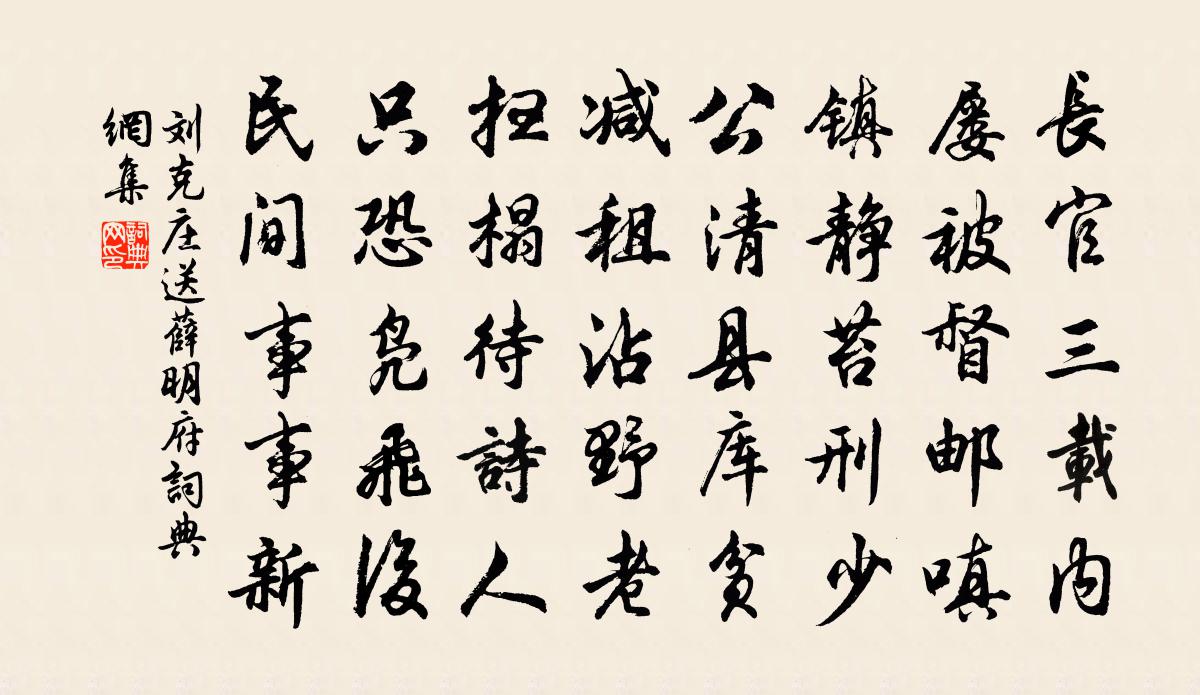 長官三載内
屡被督邮嗔
镇静苔刑少
公清县库贫
减租沾野老
扫榻待詩人
只恐凫飛後
民间事事新
刘克庄送薛明府詞典
網集
詞典
网印